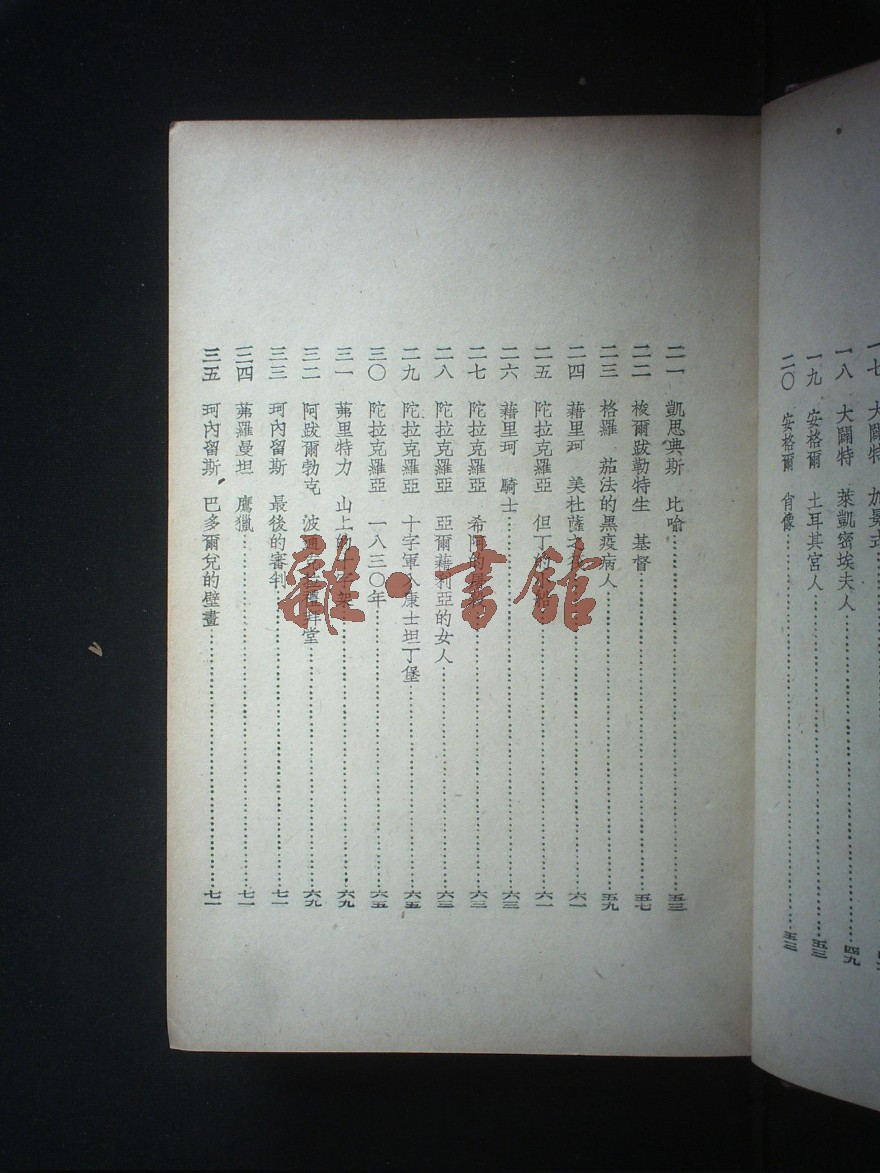 一八　大闢特　萊凱密埃夫人……四九
一九　安格爾　土耳其宮人……五三
二〇　安格爾　肖像……五三
二一　凱思典斯　比喻……五三
二二　梭爾跋勒特生　基督……五七
二三　格羅　茄法的黑疫病人……五九
二四　藉里珂　美杜薩之……六一
二五　陀拉克羅亞　但丁的……六一
二六　藉里珂　騎士……六三
二七　陀拉克羅亞　希阿的……六三
二八　陀拉克羅亞　亞爾藉利亞的女人……六三
二九　陀拉克羅亞　十字軍入康士坦丁堡……六五
三〇　陀拉克羅亞　一八三〇年……六五
三一　茀里特力　山上的十字架……六九
三二　阿跋爾勃克　波……禮拜堂……六九
三三　珂內留斯　最後的審判……七一
三四　茀羅曼坦　鷹獵……七一
三五　珂內留斯　巴多爾兌的壁畫……七一
雜·書館